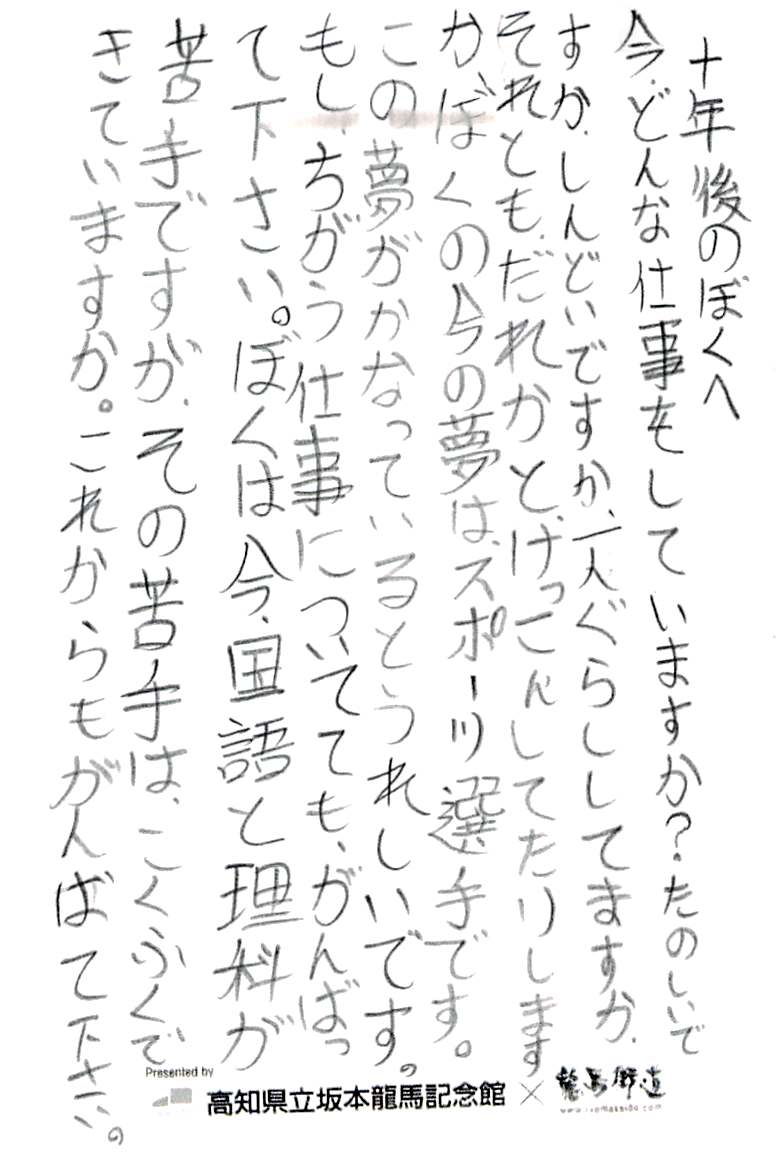 十年後のぼくへ
今、どんな仕事をしていますか?たのしいで
すか、しんどいですか、一人ぐらししてますか、
それとも、だれかと、けっこんしてたりします
か、ぼくの今の夢は、スポーツ選手です。
この夢がかなっているとうれしいです。
もし、ちがう仕事についてても、がんばっ
て下さい。ぼくは今、国語と理科が
苦手ですが、その苦手は、こくふくで
きていますか。これからもがんばて下さい。
Presented by
高知県立坂本龍馬記念館×龍馬街道